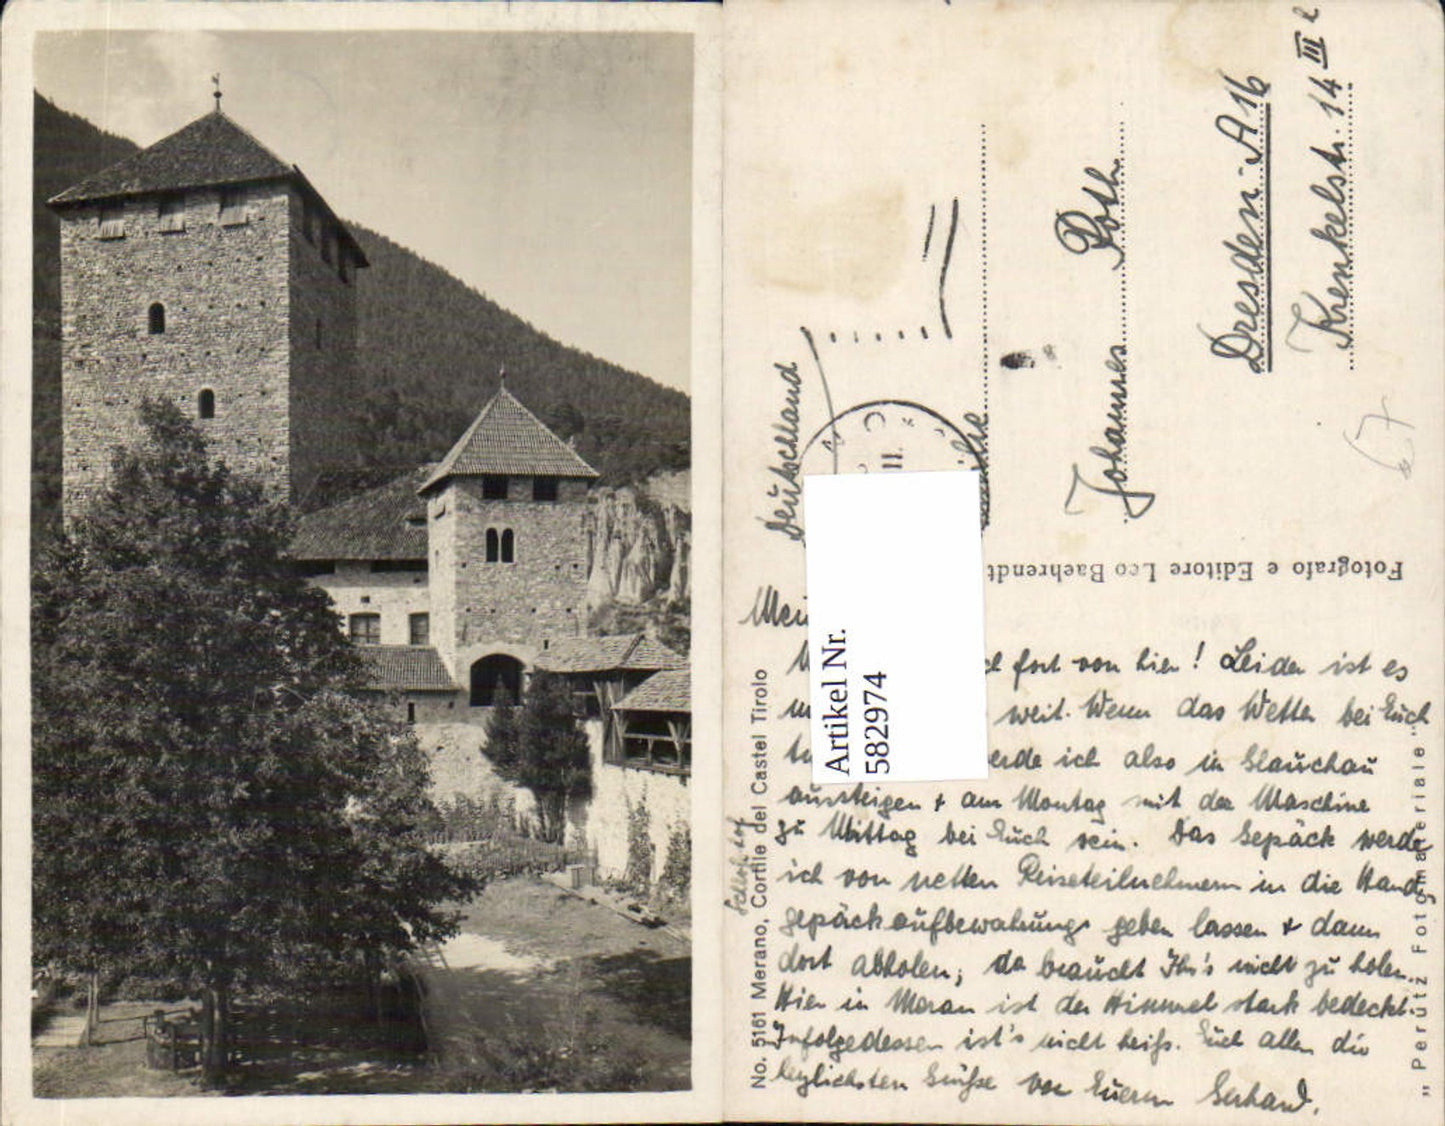 Deutschland
Johannes Poth
Dresden-A 16
Krenkelstr. 14 III
67
II.
Fotografo e Editore Leo Baehrendt
Artikel Nr.
582974
fort von hier! Leider ist es
weit. Wenn das Wetter bei Euch
ich also in Glauchau
aussteigen + am Montag mit der Maschine
zu Mittag bei Euch sein. Das Gepäck werde
ich von netten Reiseteilnehmern in die Hand-
gepäckaufbewahrung geben lassen + dann
dort abholen; da braucht Ihr's nicht zu holen.
Hier in Meran ist der Himmel stark bedeckt.
Infolgedessen ist's nicht heiß. Euch allen die
herzlichsten Grüße von Eurem Gerhard.
No. 5161 Merano, Cortile del Castel Tirolo
"Perutz Fotomateriale"